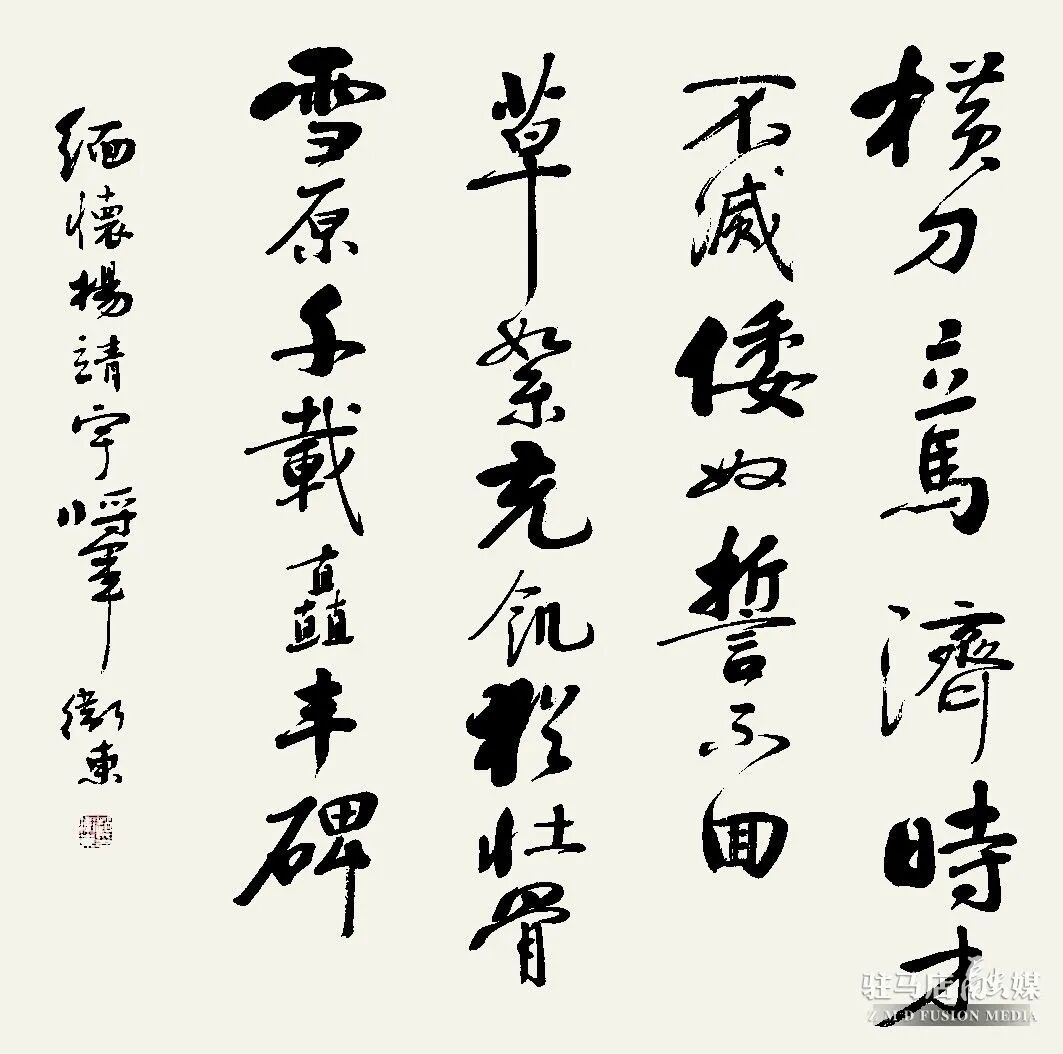 橫刀立馬濟時才
不滅倭奴誓不回
草絮充飢拯壯骨
雪原千載矗丰碑
緬懷楊靖宇將軍 衛東
驻马店融媒
Z M D FUSION MEDIA